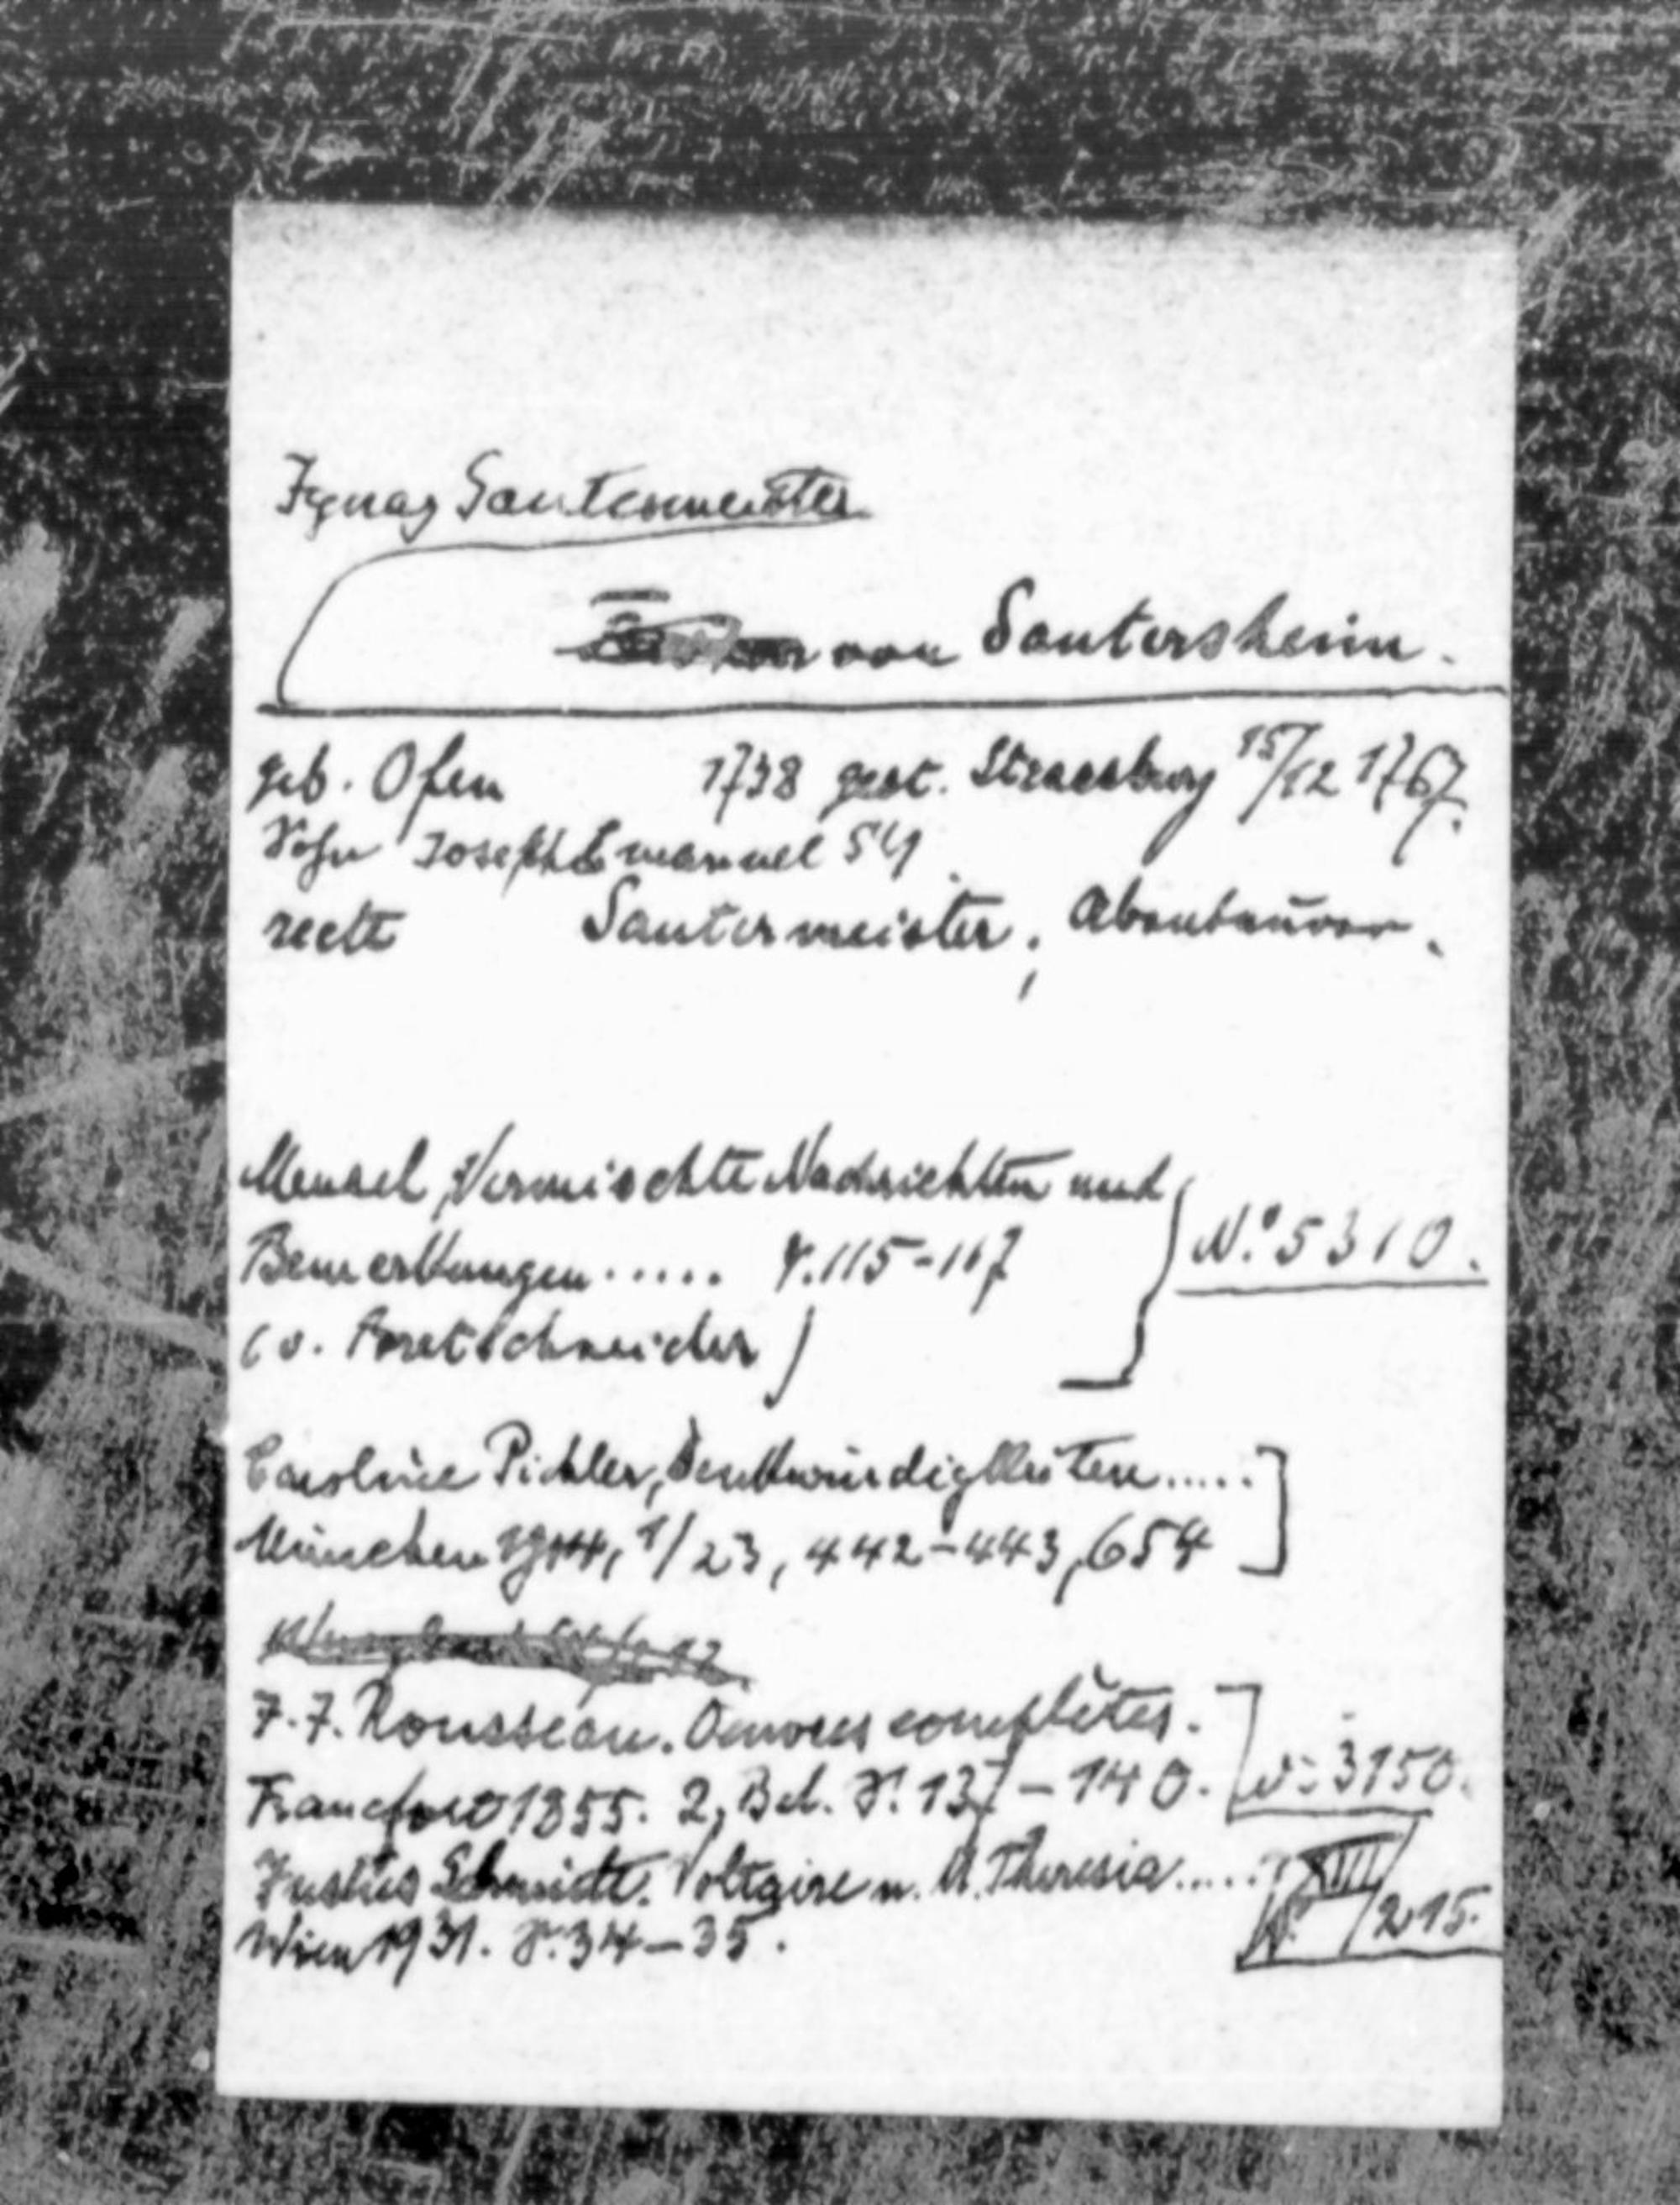 Ignaz Sautermeister
von Sautersheim.
geb. Ofen 1738 gest. Strassburg 15/12 1767.
Sohn Joseph Emanuel S
recte Sautermeister; Abenteurer.
Meusel, Vermischte Nachrichten und
Bemerkungen ..... S. 115-117
(v. Bretschneider)
No. 5310.
Caroline Pichler, Denkwürdigkeiten .....
München 1914, 1/23, 442-443, 654
J. J. Rousseau. Oeuvres complètes.
Francfort 1855. 2, Bd. S. 137-140.
3150.
Justus Schmidt. Voltaire u. M. Theresia .....
Wien 1931. S. 34-35.
XIII/215.